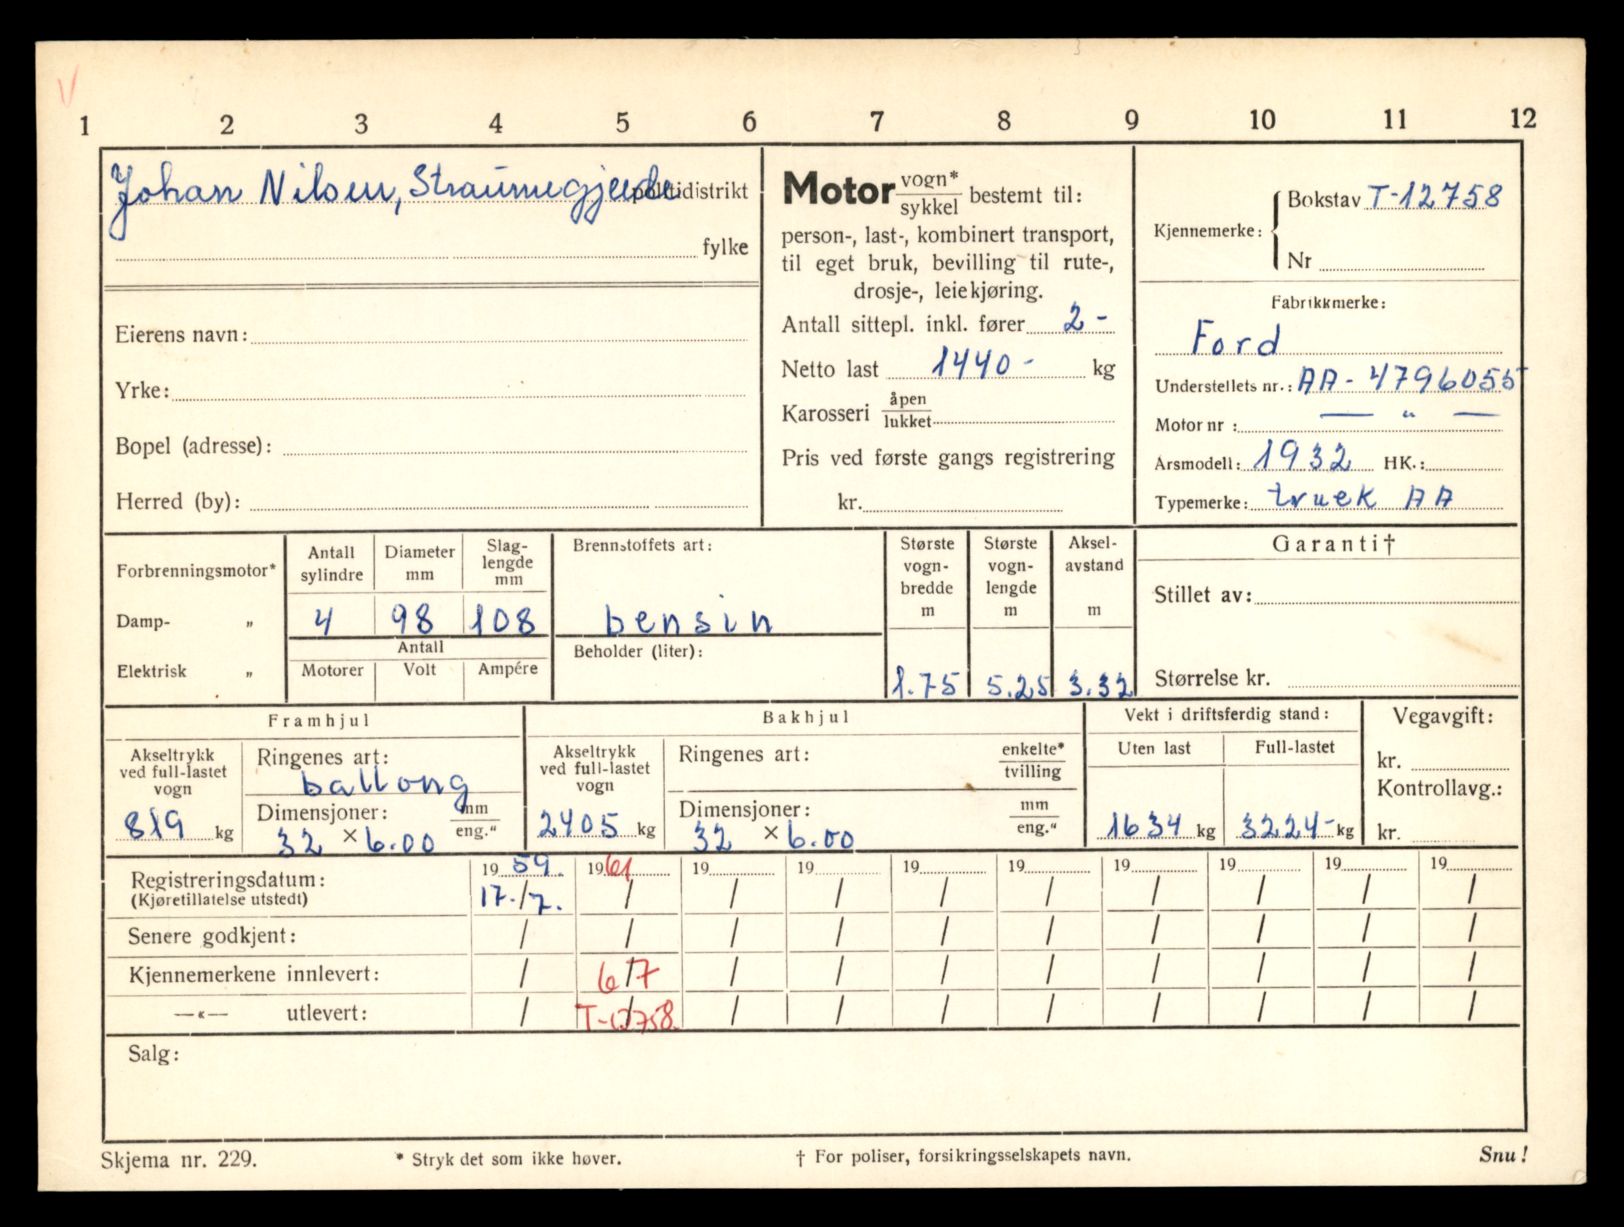 V
1 2 3 4 5 6 7 8 9 10 11 12
Johan Nilsen, Straumegjerde politidistrikt
fylke
Eierens navn:
Yrke:
Bopel (adresse):
Herred (by):
Motor vogn* sykkel bestemt til:
person-, last-, kombinert transport,
til eget bruk, bevilling til rute-,
drosje-, leiekjøring.
Antall sittepl. inkl. fører 2 -
Netto last 1440 - kg
Karosseri åpen lukket
Pris ved første gangs registrering
kr.
Kjennemerke: Bokstav T-12758
Nr
Fabrikkmerke:
Ford
Understellets nr.: AA - 4796055
Motor nr : — " —
Årsmodell: 1932 HK.:
Typemerke: truck AA
Forbrenningsmotor*
Damp- „
Elektrisk „
Antall sylindre
Diameter mm
Slag-lengde mm
4 98 108
Antall
Motorer Volt Ampére
Brennstoffets art:
bensin
Beholder (liter):
Største vogn-bredde m
1.75
Største vogn-lengde m
5.25
Aksel-avstand m
3.32
Garanti†
Stillet av:
Størrelse kr.
Framhjul
Akseltrykk ved full-lastet vogn
819 kg
Ringenes art:
ballong
Dimensjoner: mm eng."
32 × 6.00
Bakhjul
Akseltrykk ved full-lastet vogn
2405 kg
Ringenes art: enkelte* tvilling
Dimensjoner: mm eng."
32 × 6.00
Vekt i driftsferdig stand:
Uten last Full-lastet
1634 kg 3224- kg
Vegavgift:
kr.
Kontrollavg.:
kr.
Registreringsdatum: 19 59. 19 61 19 19 19 19 19 19 19 19
(Kjøretillatelse utstedt) 17./7. / / / / / / / / /
Senere godkjent: / / / / / / / / / /
Kjennemerkene innlevert: / 6/7 / / / / / / / /
—«— utlevert: / T-12758. / / / / / / / /
Salg:
Skjema nr. 229. * Stryk det som ikke høver. † For poliser, forsikringsselskapets navn. Snu!